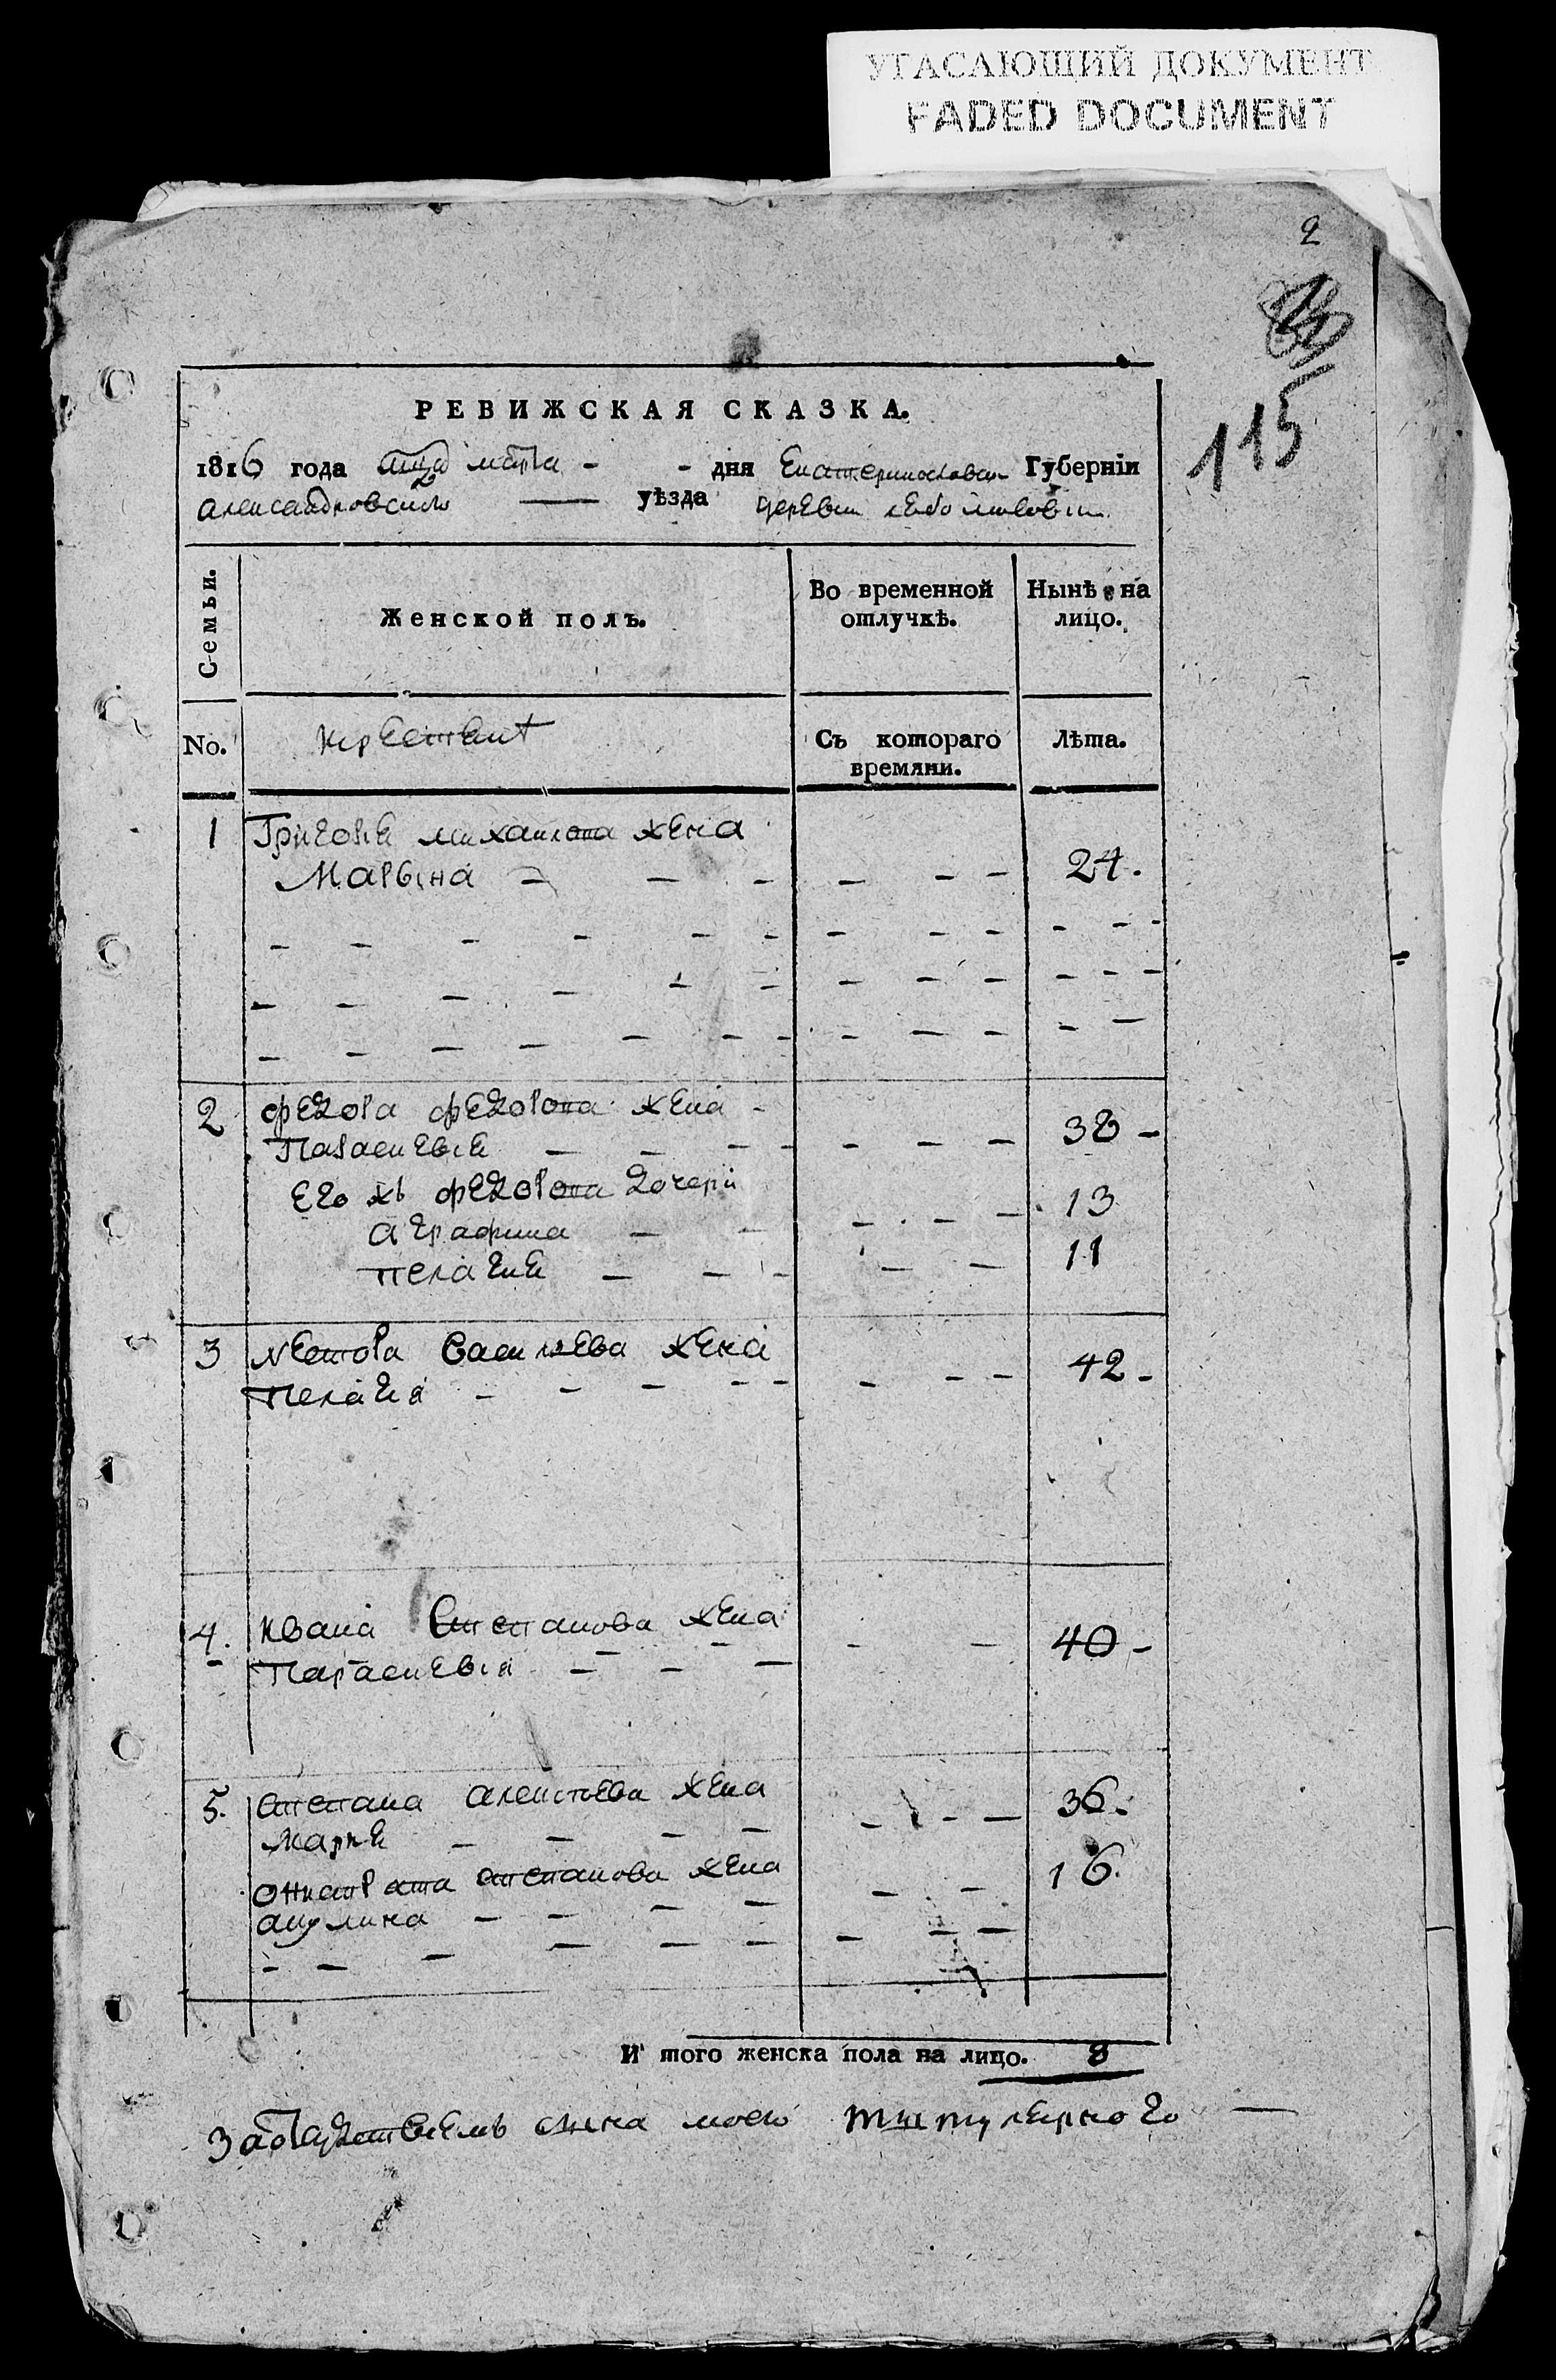 УГАСАЮЩИЙ ДОКУМЕНТ
FADED DOCUMENT
2
115
РЕВИЖСКАЯ СКАЗКА.
1816 года мца марта - - дня Екатеринославской Губерніи
александровского — уѣзда деревни
Семьи.
Женской полъ.
Во временной отлучкѣ.
Нынѣ на лицо.
No.
крестьянъ
Съ котораго времяни.
Лѣта.
1 Григорія михаилова жена
Марына - - - - - - 24.
2 федора федорова жена -
Параскевія - - - - - - 38 -
Его жъ федорова дочери
аграфина - - - - - 13
пелагия - - - - - 11
3 нестора васильева жена
Пелагия - - - - - - - - 42 -
4. Ивана Степанова жена
Параскевія - - - - - 40 -
5. степана алексеева жена
Мария - - - - - - - 36.
степанова жена
акулина - - - - - - 16.
И того женска пола на лицо. 8
сына моего титулярного —